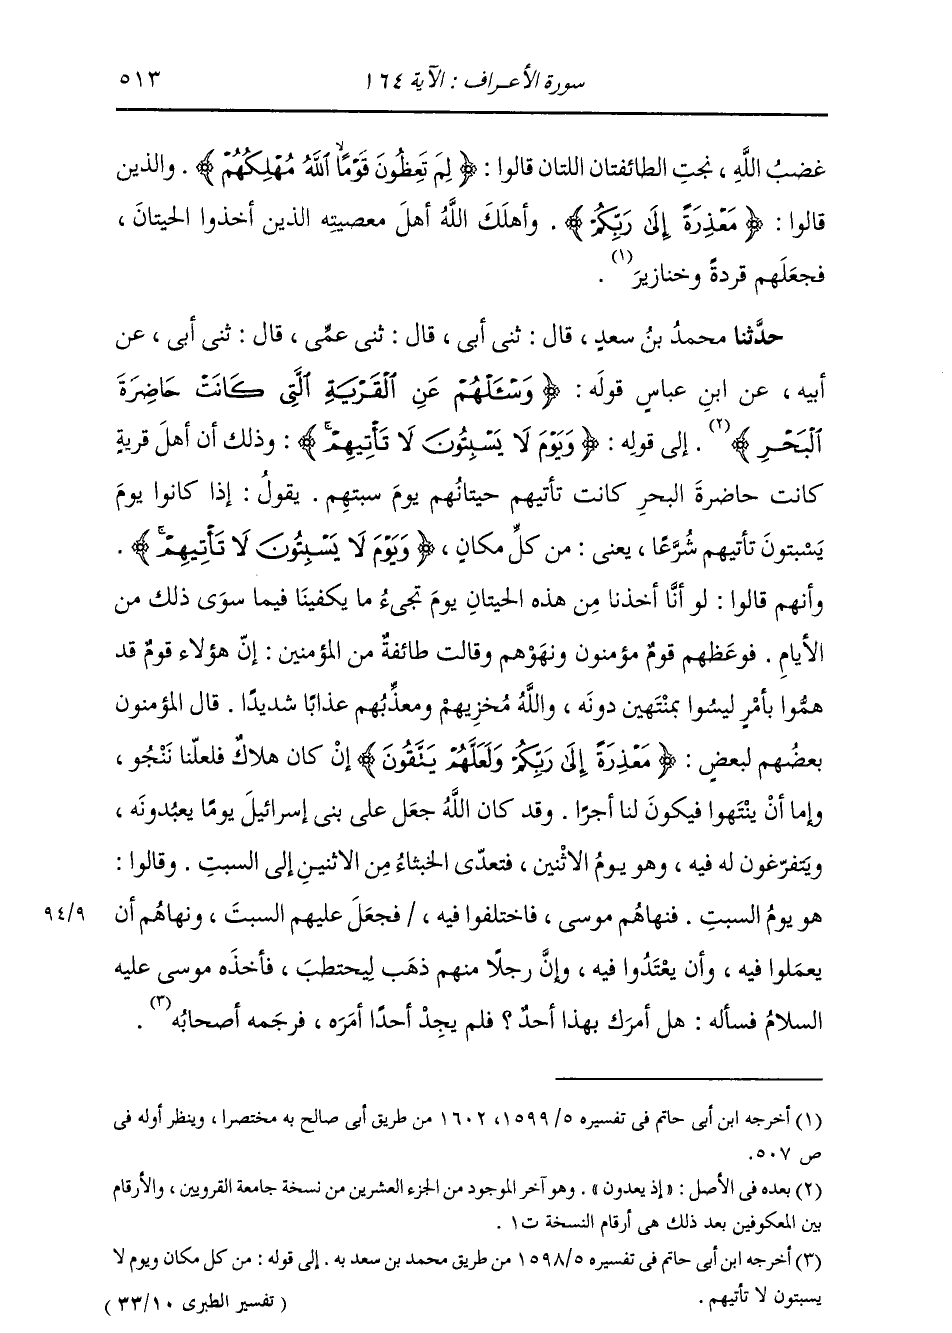 سورة الأعراف : الآية ١٦٤ ٥١٣
غضبُ اللَّهِ ، نجتِ الطائفتان اللتان قالوا : ﴿ لِمَ تَعِظُونَ قَوْمًا ۙ ٱللَّهُ مُهْلِكُهُمْ ﴾ . والذين
قالوا : ﴿ مَعْذِرَةً إِلَىٰ رَبِّكُمْ ﴾ . وأهلَكَ اللَّهُ أهلَ معصيتِه الذين أخذوا الحيتانَ ،
فجعَلَهم قردةً وخنازيرَ (١) .
حدَّثنا محمدُ بنُ سعدٍ ، قال : ثنى أبى ، قال : ثنى عمِّى ، قال : ثنى أبى ، عن
أبيه ، عن ابنِ عباسٍ قولَه : ﴿ وَسْـَٔلْهُمْ عَنِ ٱلْقَرْيَةِ ٱلَّتِى كَانَتْ حَاضِرَةَ
ٱلْبَحْرِ ﴾ (٢) . إلى قولِه : ﴿ وَيَوْمَ لَا يَسْبِتُونَ لَا تَأْتِيهِمْ ۚ ﴾ : وذلك أن أهلَ قريةٍ
كانت حاضرةَ البحرِ كانت تأتيهم حيتانُهم يومَ سبتِهم . يقولُ : إذا كانوا يومَ
يَسْبتونَ تأتيهم شُرَّعًا ، يعنى : من كلِّ مكانٍ ، ﴿ وَيَوْمَ لَا يَسْبِتُونَ لَا تَأْتِيهِمْ ۚ ﴾ .
وأنهم قالوا : لو أنَّا أخذنا مِن هذه الحيتانِ يومَ تجىءُ ما يكفينَا فيما سوَى ذلك من
الأيامِ . فوعَظهم قومٌ مؤمنون ونهَوْهم وقالت طائفةٌ من المؤمنين : إنّ هؤلاء قومٌ قد
همُّوا بأمْرٍ ليسُوا بمنْتَهين دونَه ، واللَّهُ مُخزِيهمْ ومعذِّبُهم عذابًا شديدًا . قال المؤمنون
بعضُهم لبعضٍ : ﴿ مَعْذِرَةً إِلَىٰ رَبِّكُمْ وَلَعَلَّهُمْ يَتَّقُونَ ﴾ إنْ كان هلاكٌ فلعلّنا نَنْجُو ،
وإما أنْ ينْتَهوا فيكونَ لنا أجرًا . وقد كان اللَّهُ جعَل على بنى إسرائيلَ يومًا يعبُدونَه ،
ويَتفرّغون له فيه ، وهو يومُ الاثْنين ، فتعدّى الخبثاءُ مِن الاثنينِ إلى السبتِ . وقالوا :
هو يومُ السبتِ . فنهاهُم موسى ، فاختلفوا فيه ، / فجعَلَ عليهم السبتَ ، ونهاهُم أن ٩٤/٩
يعمَلوا فيه ، وأن يعْتَدُوا فيه ، وإنَّ رجلًا منهم ذهَب لِيحتطبَ ، فأخذَه موسى عليه
السلامُ فسأله : هل أمرَك بهذا أحدٌ ؟ فلم يجِدْ أحدًا أمَرَه ، فرجَمه أصحابُه (٣) .
(١) أخرجه ابن أبى حاتم فى تفسيره ٥/ ١٥٩٩، ١٦٠٢ من طريق أبى صالح به مختصرا ، وينظر أوله فى
ص ٥٠٧.
(٢) بعده فى الأصل : « إذ يعدون » . وهو آخر الموجود من الجزء العشرين من نسخة جامعة القرويين ، والأرقام
بين المعكوفين بعد ذلك هى أرقام النسخة ت١ .
(٣) أخرجه ابن أبى حاتم فى تفسيره ١٥٩٨/٥ من طريق محمد بن سعد به . إلى قوله : من كل مكان ويوم لا
يسبتون لا تأتيهم .
( تفسير الطبرى ٣٣/١٠ )